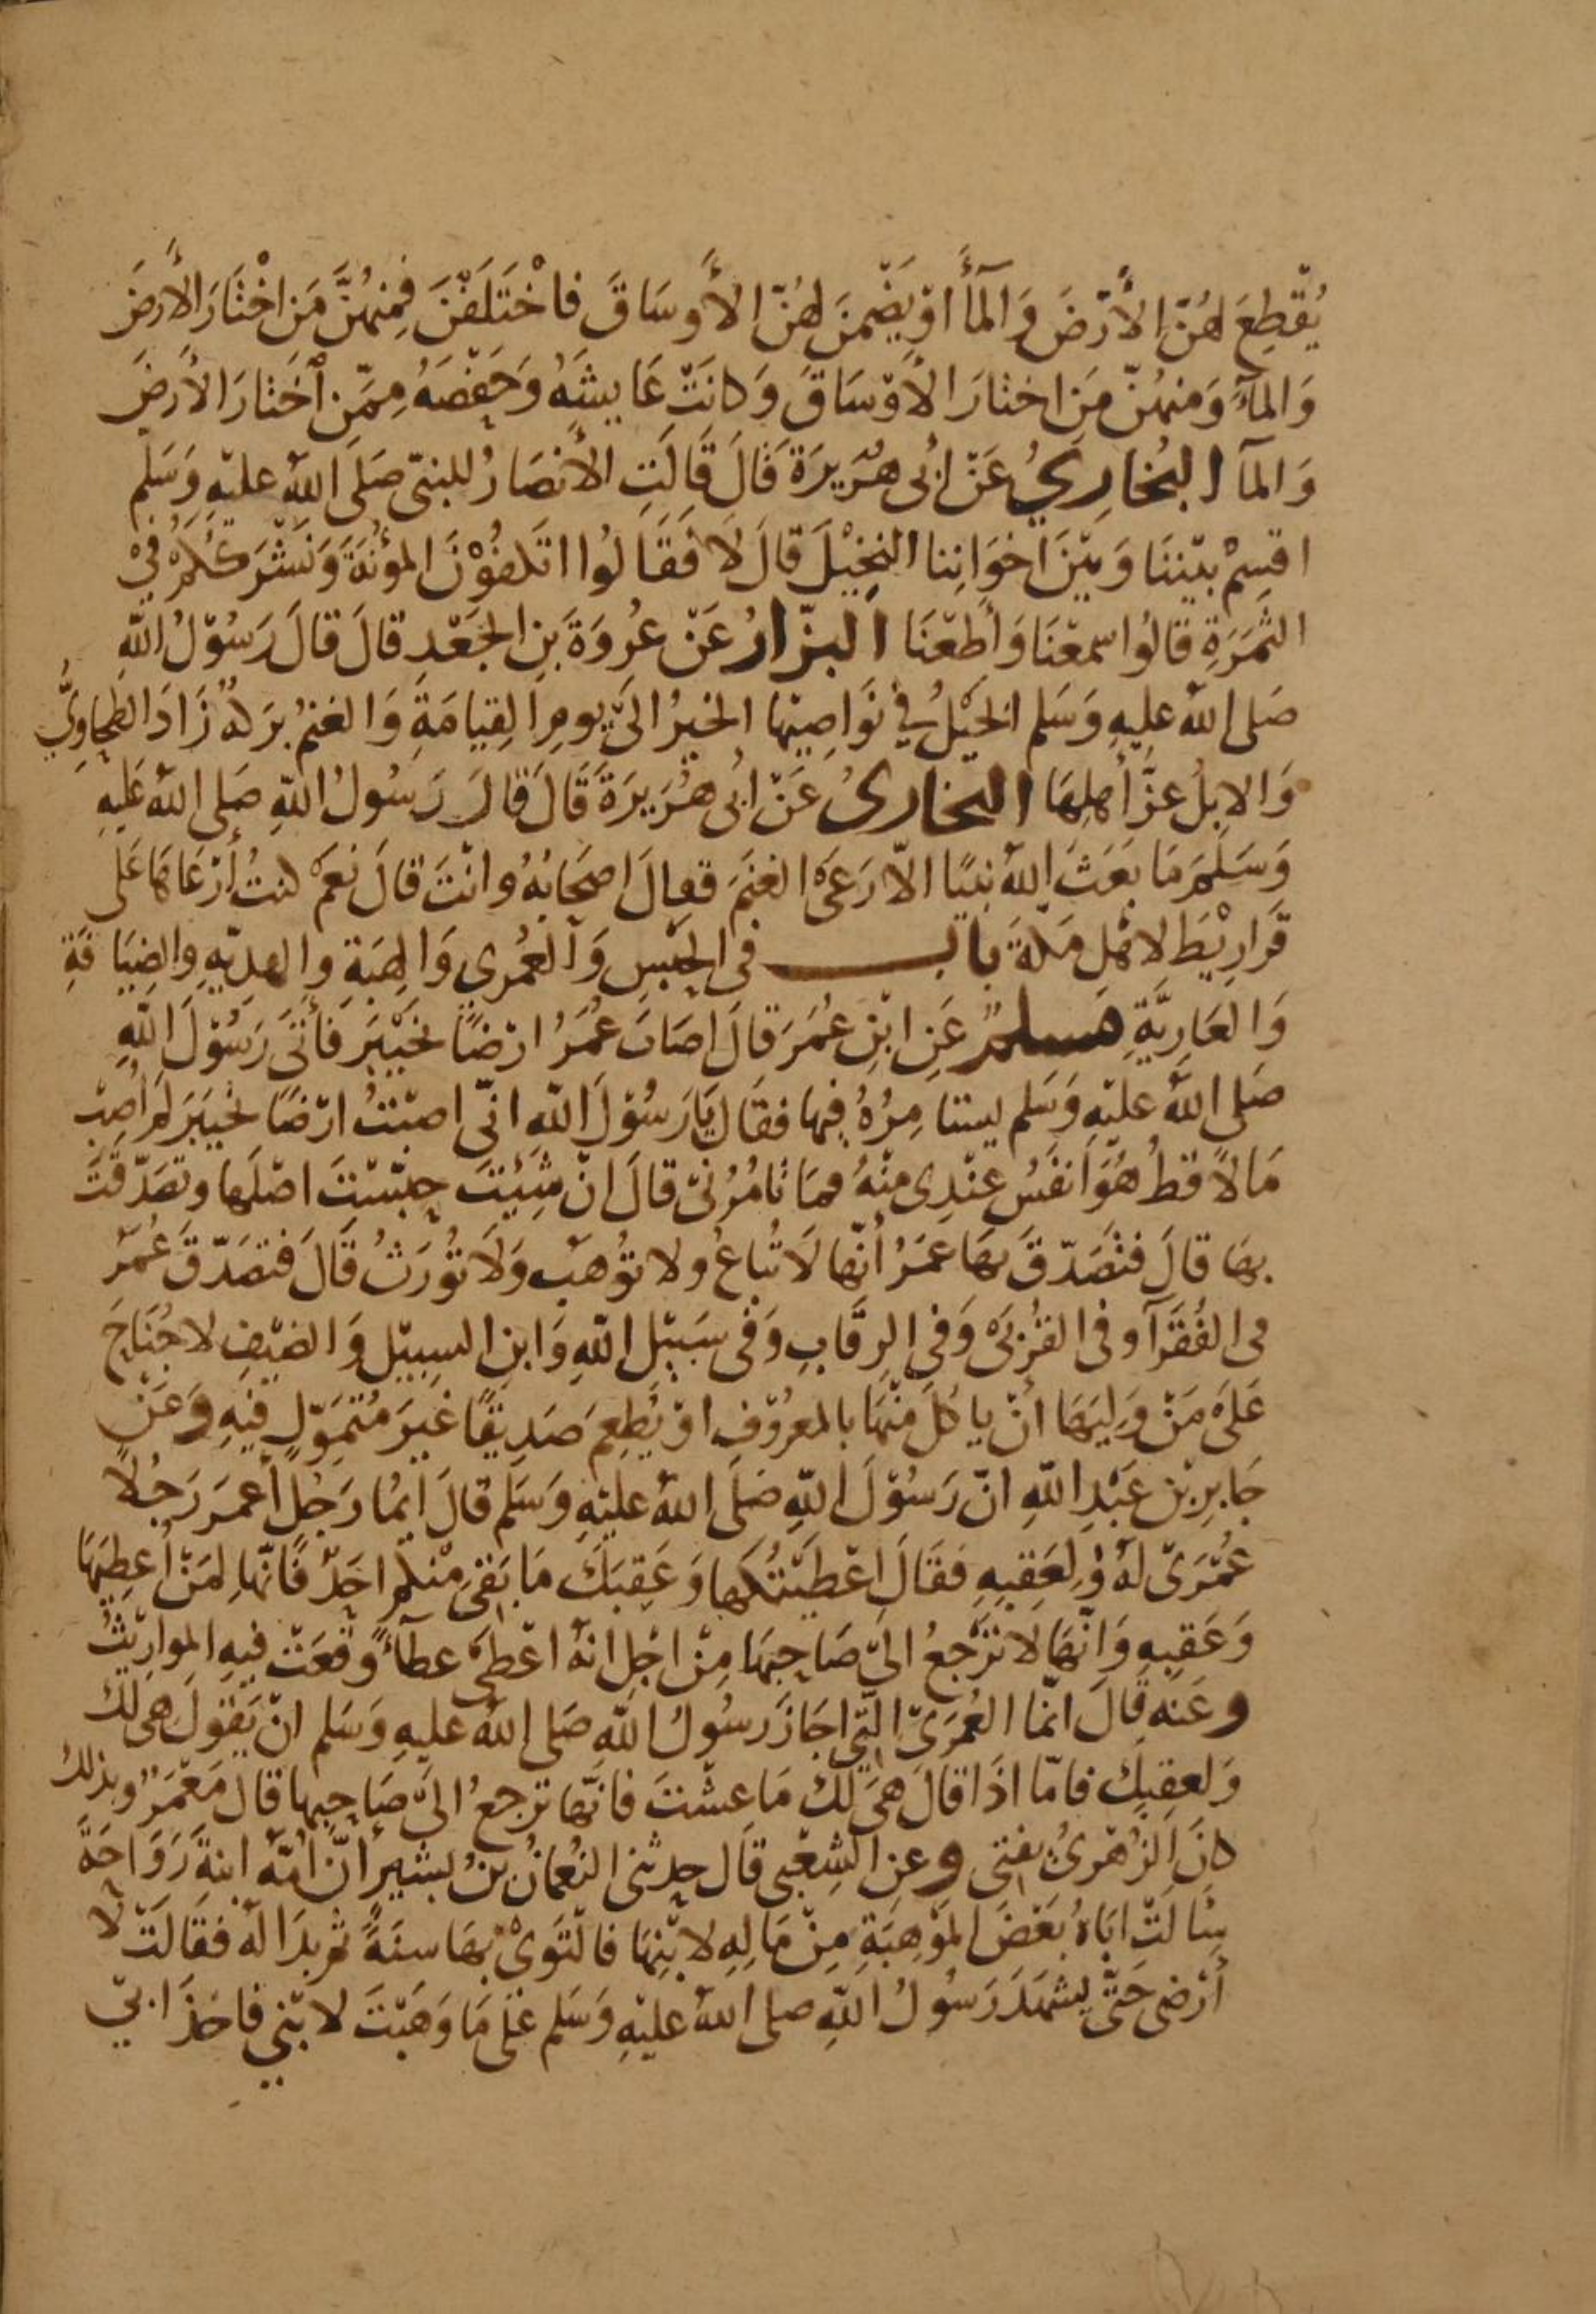 يُقْطِعَ لَهُنّ الأَرْضَ وَالمَآءَ اوْ يَضْمَنَ لهُنّ الأَوسَاقَ فاخْتَلَفْنَ فَمِنهُنَّ مَن اخْتَارَ الأَرضَ
وَالمآءَ وَمنهُنّ مَن اختارَ الأَوْسَاقَ وَكانَتْ عَايِشَةُ وَحَفْصَةُ مِمّن اخَتارَ الأرضَ
وَالمآ البُخارِيُ عَنْ ابُى هُرَيرَةَ قالَ قَالَتِ الأنصَارُ للنبىّ صَلىَ اللهُ عليْهِ وَسَلم
اقسِمْ بيْننَا وَبيْنَ اخوَانِنا النخِيْلَ قالَ لَا فَقَالُوا اتكفُوْنَ المؤُنَةَ وَنَشْرَككُمْ فيْ
الثمَرَةِ قالُوا سمعْنَا وَأَطعْنَا البزّارُ عَنْ عُروَةَ بنِ الجَعْدِ قالَ قالَ رَسُوْلُ اللهِ
صَلى اللهُ عليهِ وَسَلم الخيْلُ في نَوَاصِيْها الخيرُ الىَ يومِ القِيامَةِ وَالغنمُ بَركةٌ زَادَ الطحاوِيُّ
وَالابِلُ عزٌّ أهلِهَا البخارىُ عَنْ ابُى هُرَيرَةَ قَالَ قالَ رَسُولُ اللهِ صَلى اللهُ عَليهِ
وَسَلمَ مَا بَعَثَ اللهُ نبيًا الاّ رَعَى الغنَمَ فقالَ اصحَابُهُ وانْتَ قالَ نعَمْ كنتُ أرْعَاهَا عَلى
قَرَارِيْطَ لاهْلِ مَكةَ باب في الحَبْسِ وَالعُمْرِي وَالهِبَةِ والهديّةِ والضِيَافَةِ
وَالعَارِيَّةِ مسلمٌ عَنِ ابْنِ عُمَرَ قالَ اصَابَ عُمَرُ ارْضًا بخَيْبَرَ فَأتىَ رَسُوْلَ اللهِ
صَلى اللهُ عليْهِ وَسَلم يستامِرُهُ فيها فقالَ يَا رَسُوْلَ اللهِ انّى اصبْتُ ارْضًا بخيبَرَ لمَ اُصِبْ
مَالًا قطُ هُوَ انفَسُ عنْدِى منْهُ فمَا تامُرُنىْ قالَ انْ شِئْتَ حبّسْتَ اصْلَها وتصَدّقْتَ
بهَا قالَ فتَصَدّقَ بهَا عمَرُ أنّها لَا تُباعُ ولا توُهَبُ وَلَا تُورَثُ قَالَ فتصَدّقَ عُمَرُ
فى الفُقَرآ وفى القُرْبىَ وَفى الرِقَابِ وَفى سَبيْلِ اللهِ وَابنِ السبيْلِ وَالضيْفِ لا جُنَاحَ
عَلىَ مَنْ وَلِيَهَا انْ ياكُلَ منْهَا بالمعرُوْفِ اوْ يُطعِمَ صَدِيقًا غيرَ مُتَمَوّلٍ فيْهِ وَعَنْ
جَابِرِ بْنِ عَبْدِ اللهِ انّ رَسُوْلَ اللهِ صَلى اللهُ عليْهِ وَسَلم قالَ ايمُا رَجُلٍ أعمرَ رَجُلًا
عُمْرَىً لهُ وَلِعَقِبِهِ فقَالَ اعْطَيْتُكَها وَعَقِبَكَ مَا بَقىَ منْكمْ احَدٌ فانّها لمَنْ أعطِيَهَا
وَعَقبِهِ وَانّهَا لَا تَرْجعُ الىَ صَاحِبهَا مِنْ اجْلِ انهُ اعْطىَ عطآءً وقعَتْ فيهِ المواريْثُ
وعَنهُ قالَ انّما العُمْرَى التِي اجَازَ رسُولُ اللهِ صَلى اللهُ عليهِ وَسَلم انْ يَقُولَ هىَ لكَ
وَلعقِبِكَ فامّا اذَا قالَ هىَ لكَ مَا عِشْتَ فانّها ترجعُ الىَ صَاحِبها قالَ مَعْمَرٌ وبذلكَ
كانَ الزُهْرىُ يفتى وعنِ الشعْبى قالَ حدثنى النُعمانُ بنُ بشيرٍ انَّ امُّهُ ابنةَ رَوَاحَةَ
سَالَتْ ابَاهُ بَعْضَ المَوْهِبَةِ مِنْ مَالِهِ لابْنِهَا فالْتَوَىْ بهَا سنَةً ثم بدَا لَهُ فقَالَتْ لا
أرْضى حَتَّى يشهَدَ رَسُولُ اللهِ صلى اللهُ عليْهِ وَسَلم عَلىَ مَا وَهَبْتَ لابْنِي فاخَذَ ابىْ